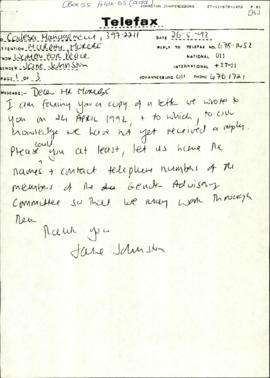 Telefax
Codesa Management, 397-2211
ATTENTION: MURPHY MOROBE
FROM: WOMEN FOR PEACE
SENDER: JANE JOHNSTON
PAGE: 1 OF 3
26-5-1992
REPLY TO TELEFAX NO.
NATIONAL 011
INTERNATIONAL +27-11
JOHANNESBURG 011 PHONE
MESSAGE:- Dear Mr Morobe
I am faxing you a copy of a letter we wrote to
you on 24 APRIL 1992, + to which, to our
knowledge we have not yet received a reply.
could
Please you at least, let us have the
names + contact telephone numbers of the
members of the Gender Advisory
Committee so that we may work through
them
Thank you
Jane Johnston